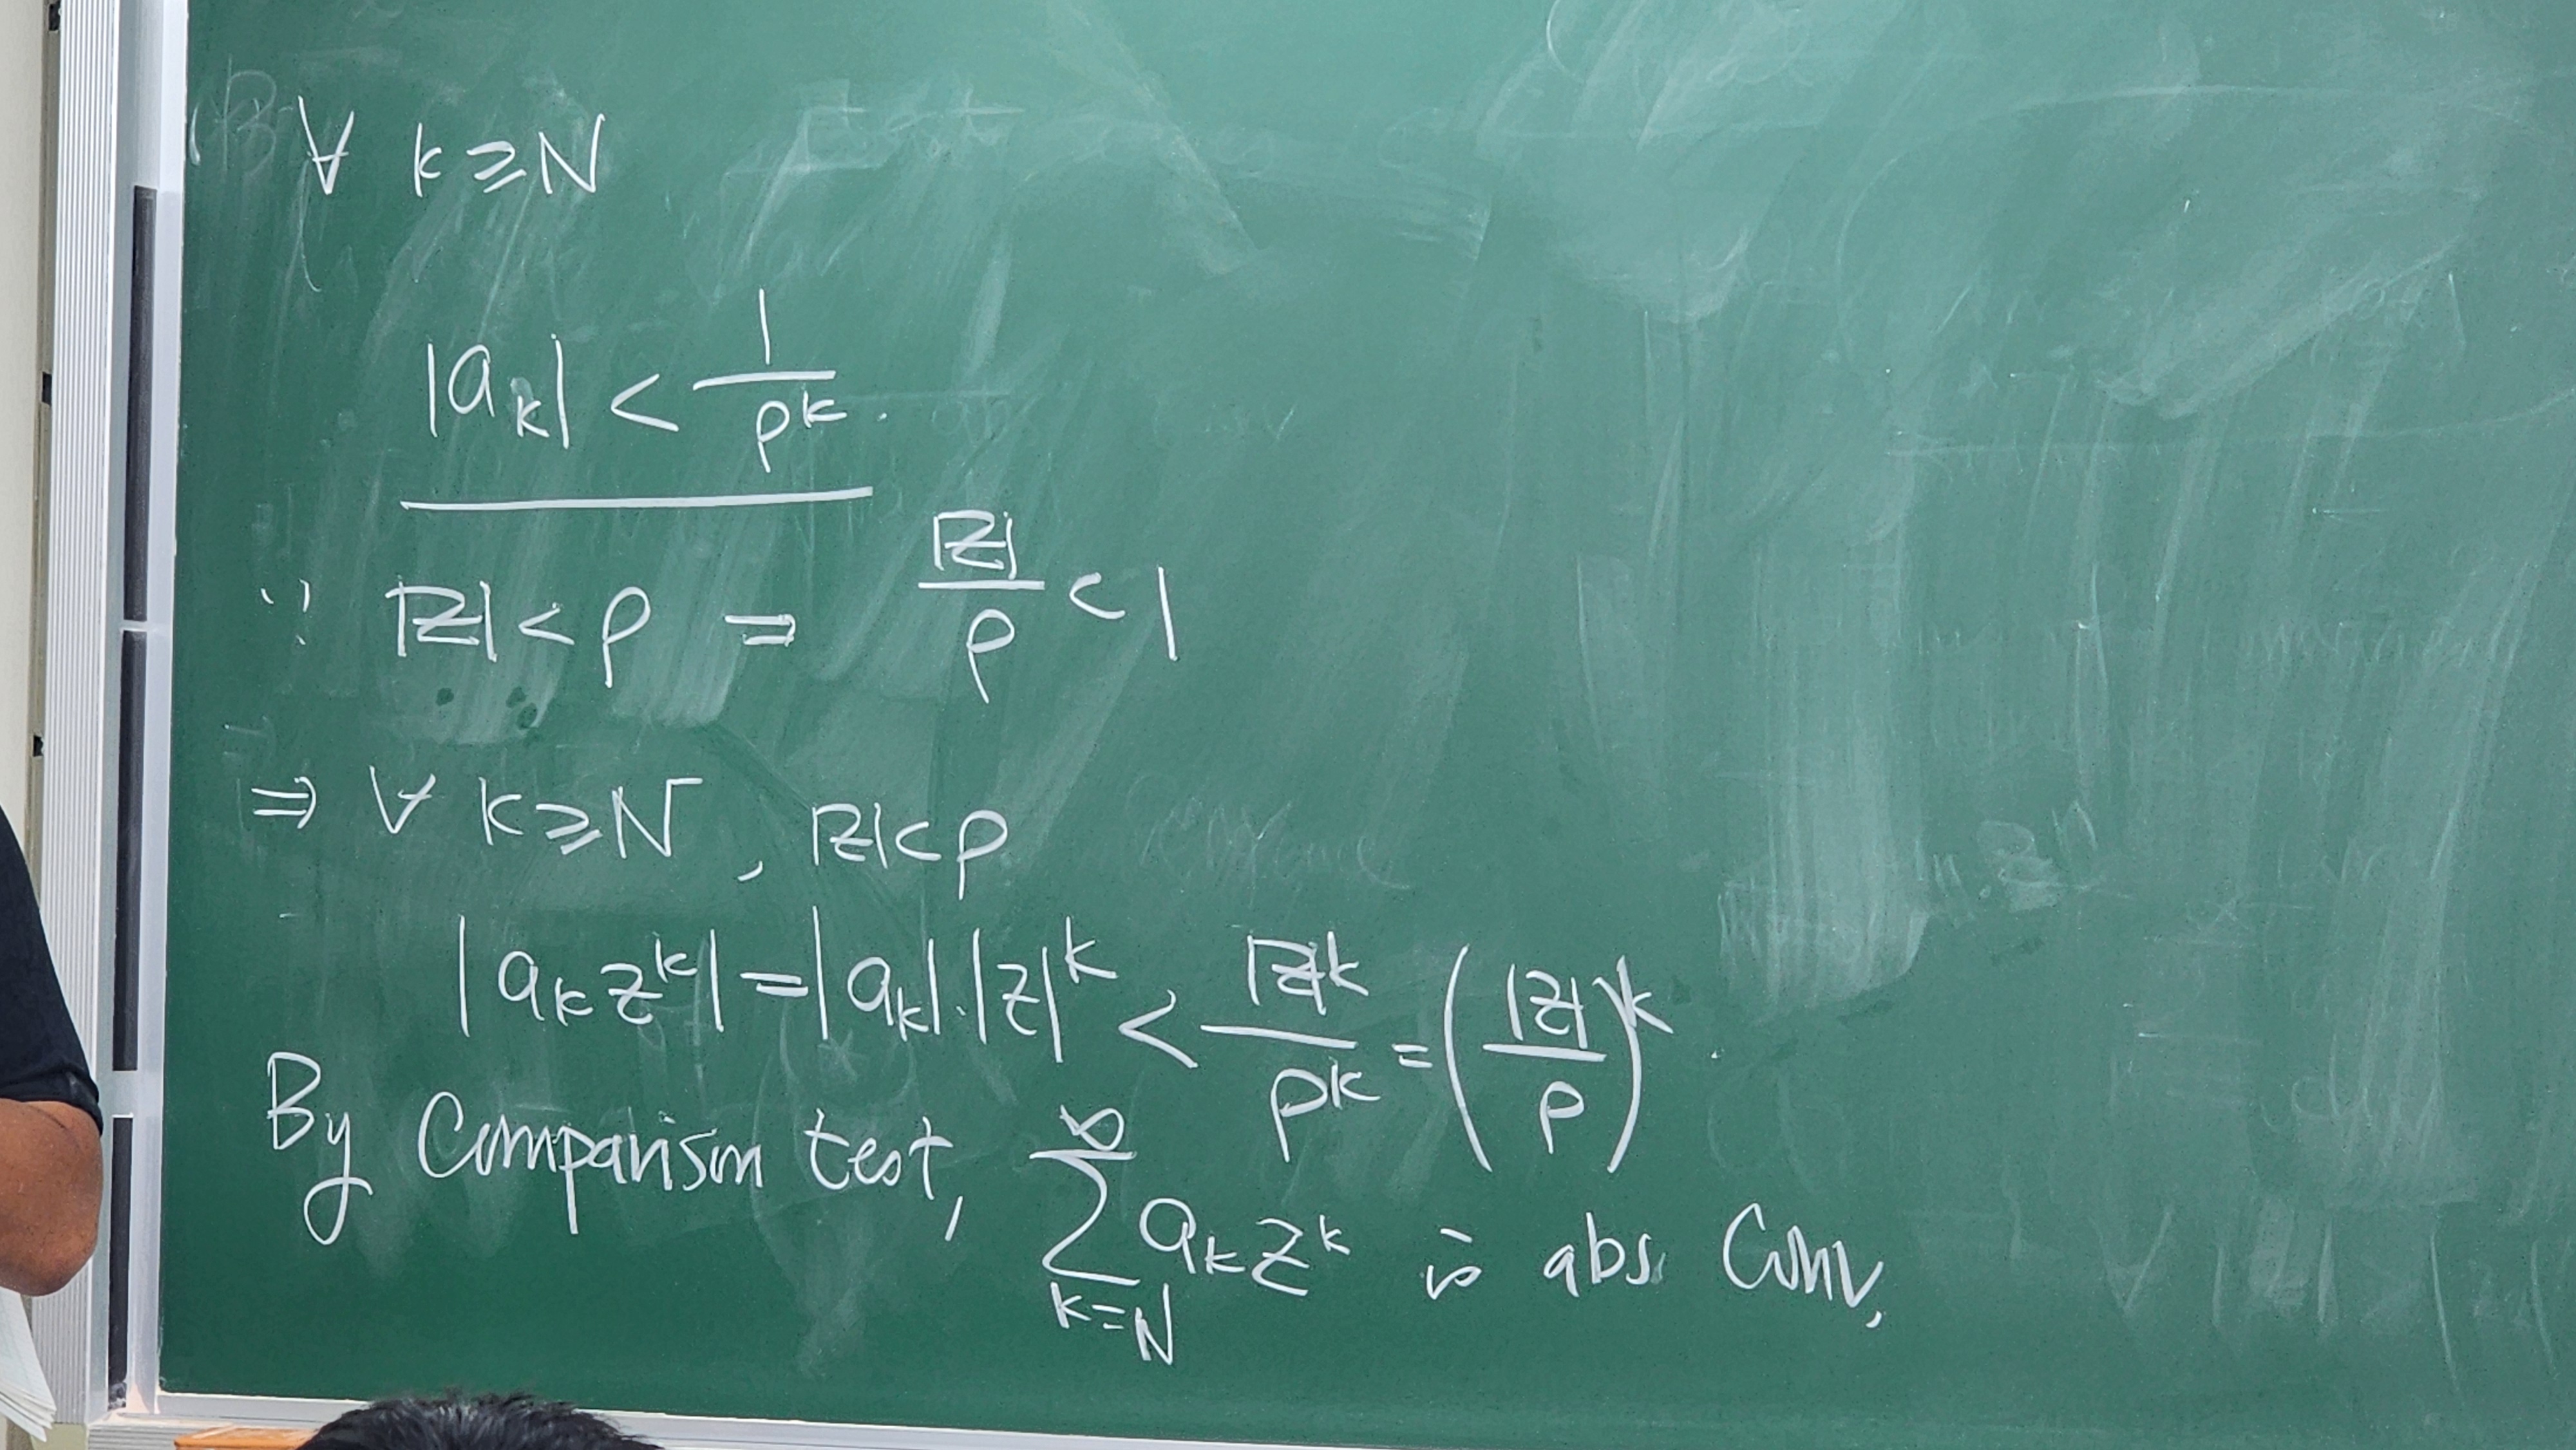 ∀ k ≥ N
|a_k| < 1/ρ^k .
∵ |z| < ρ ⇒ |z|/ρ < 1
⇒ ∀ k ≥ N , |z| < ρ
|a_k z^k| = |a_k| · |z|^k < |z|^k/ρ^k = (|z|/ρ)^k .
By Comparison test, ∑_{k=N}^{∞} a_k z^k is abs. Conv.